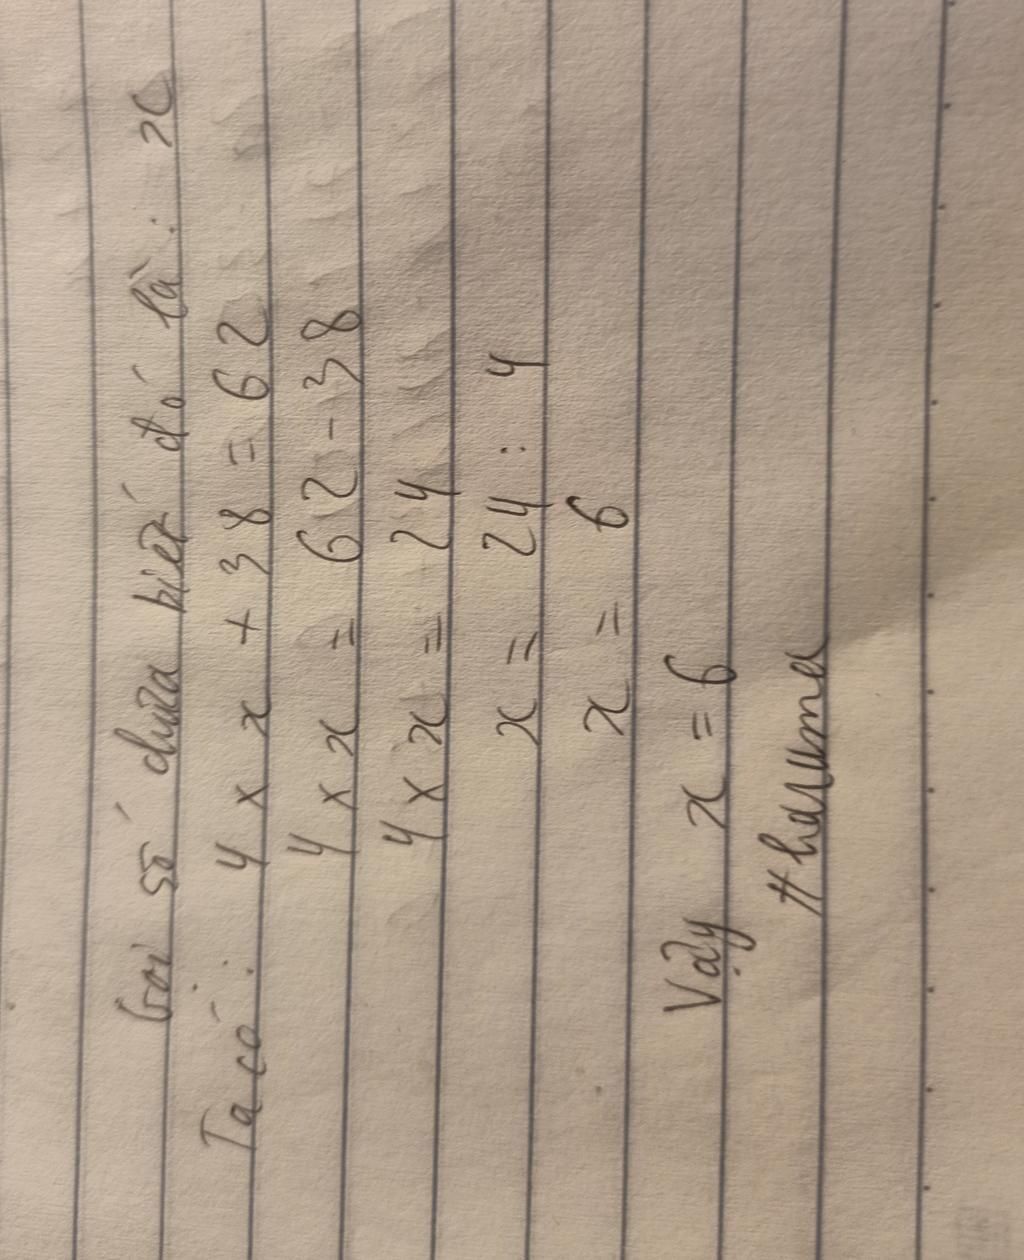 Gọi số chưa biết đó là: x
Ta có: 4 × x + 38 = 62
4 × x = 62 - 38
4 × x = 24
x = 24 : 4
x = 6
Vậy x = 6
#haruma